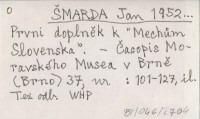 0 ŠMARDA Jan 1952...
První doplněk k "Mechům
Slovenska". - Časopis Mo-
ravského Musea v Brně
(Brno) 37, nr : 101-127, il.
Tex odb. WHP